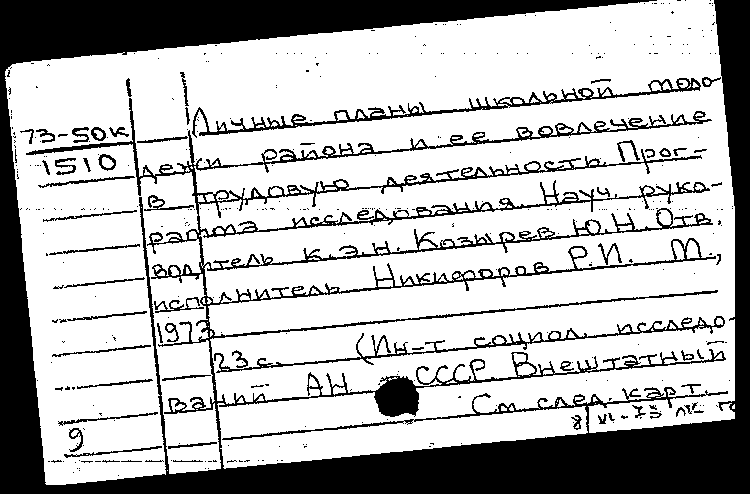 Личные планы школьной моло-
73-50к
1510
дежи района и ее вовлечение
в трудовую деятельность. Прог-
рамма исследования. Науч. руко-
водитель к.э.н. Козырев Ю.Н. Отв.
исполнитель Никифоров Р.И. М.,
1973.
23 с. (Ин-т социол. исследо-
ваний АН СССР. Внештатный
См. след. карт.
9
8/VI-73